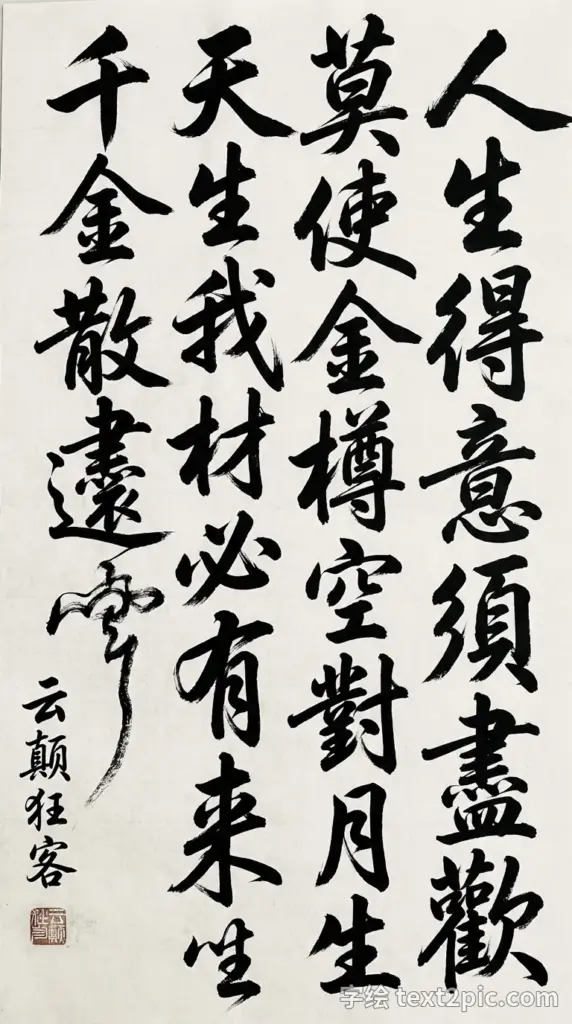 人生得意須盡歡
莫使金樽空對月生
天生我材必有来
千金散
云顛狂客
字绘 text2pic.com